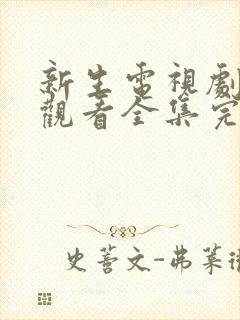 新生電視劇
觀看全集完
史蒼文-弗萊